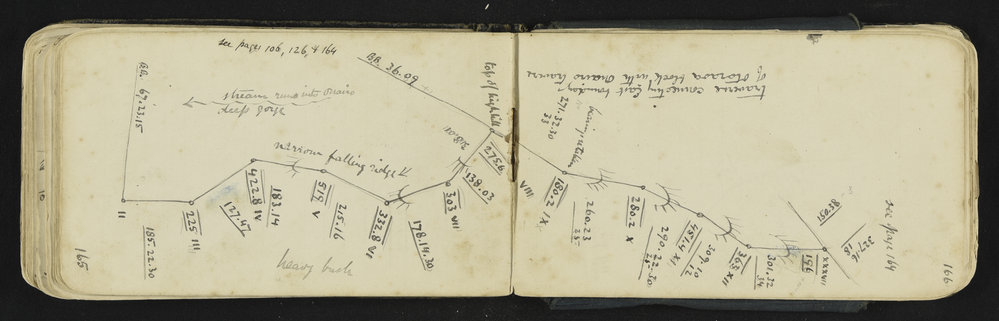 see pages 106, 126, & 164
BB. 67.23.15
BB. 36.09
stream runs into Onairo
deep gorge
narrow falling ridge
top of high hill
II
225 III
185.22.30
422.8 IV
127.47
519 V
183.14
332.8 VI
215.16
303 VII
178.14.30
275.6
138.03
heavy bush
165
traverse connecting East boundary
of Otoraoa block with Onairo traverse
VIII
271.32.30
33
180.2 IX
260.23
25
280.2 X
290.22.30
25.30
451.4 XI
309.10
12
363 XII
301.32
34
196
XXXVI
327.16
18
see page 164
166